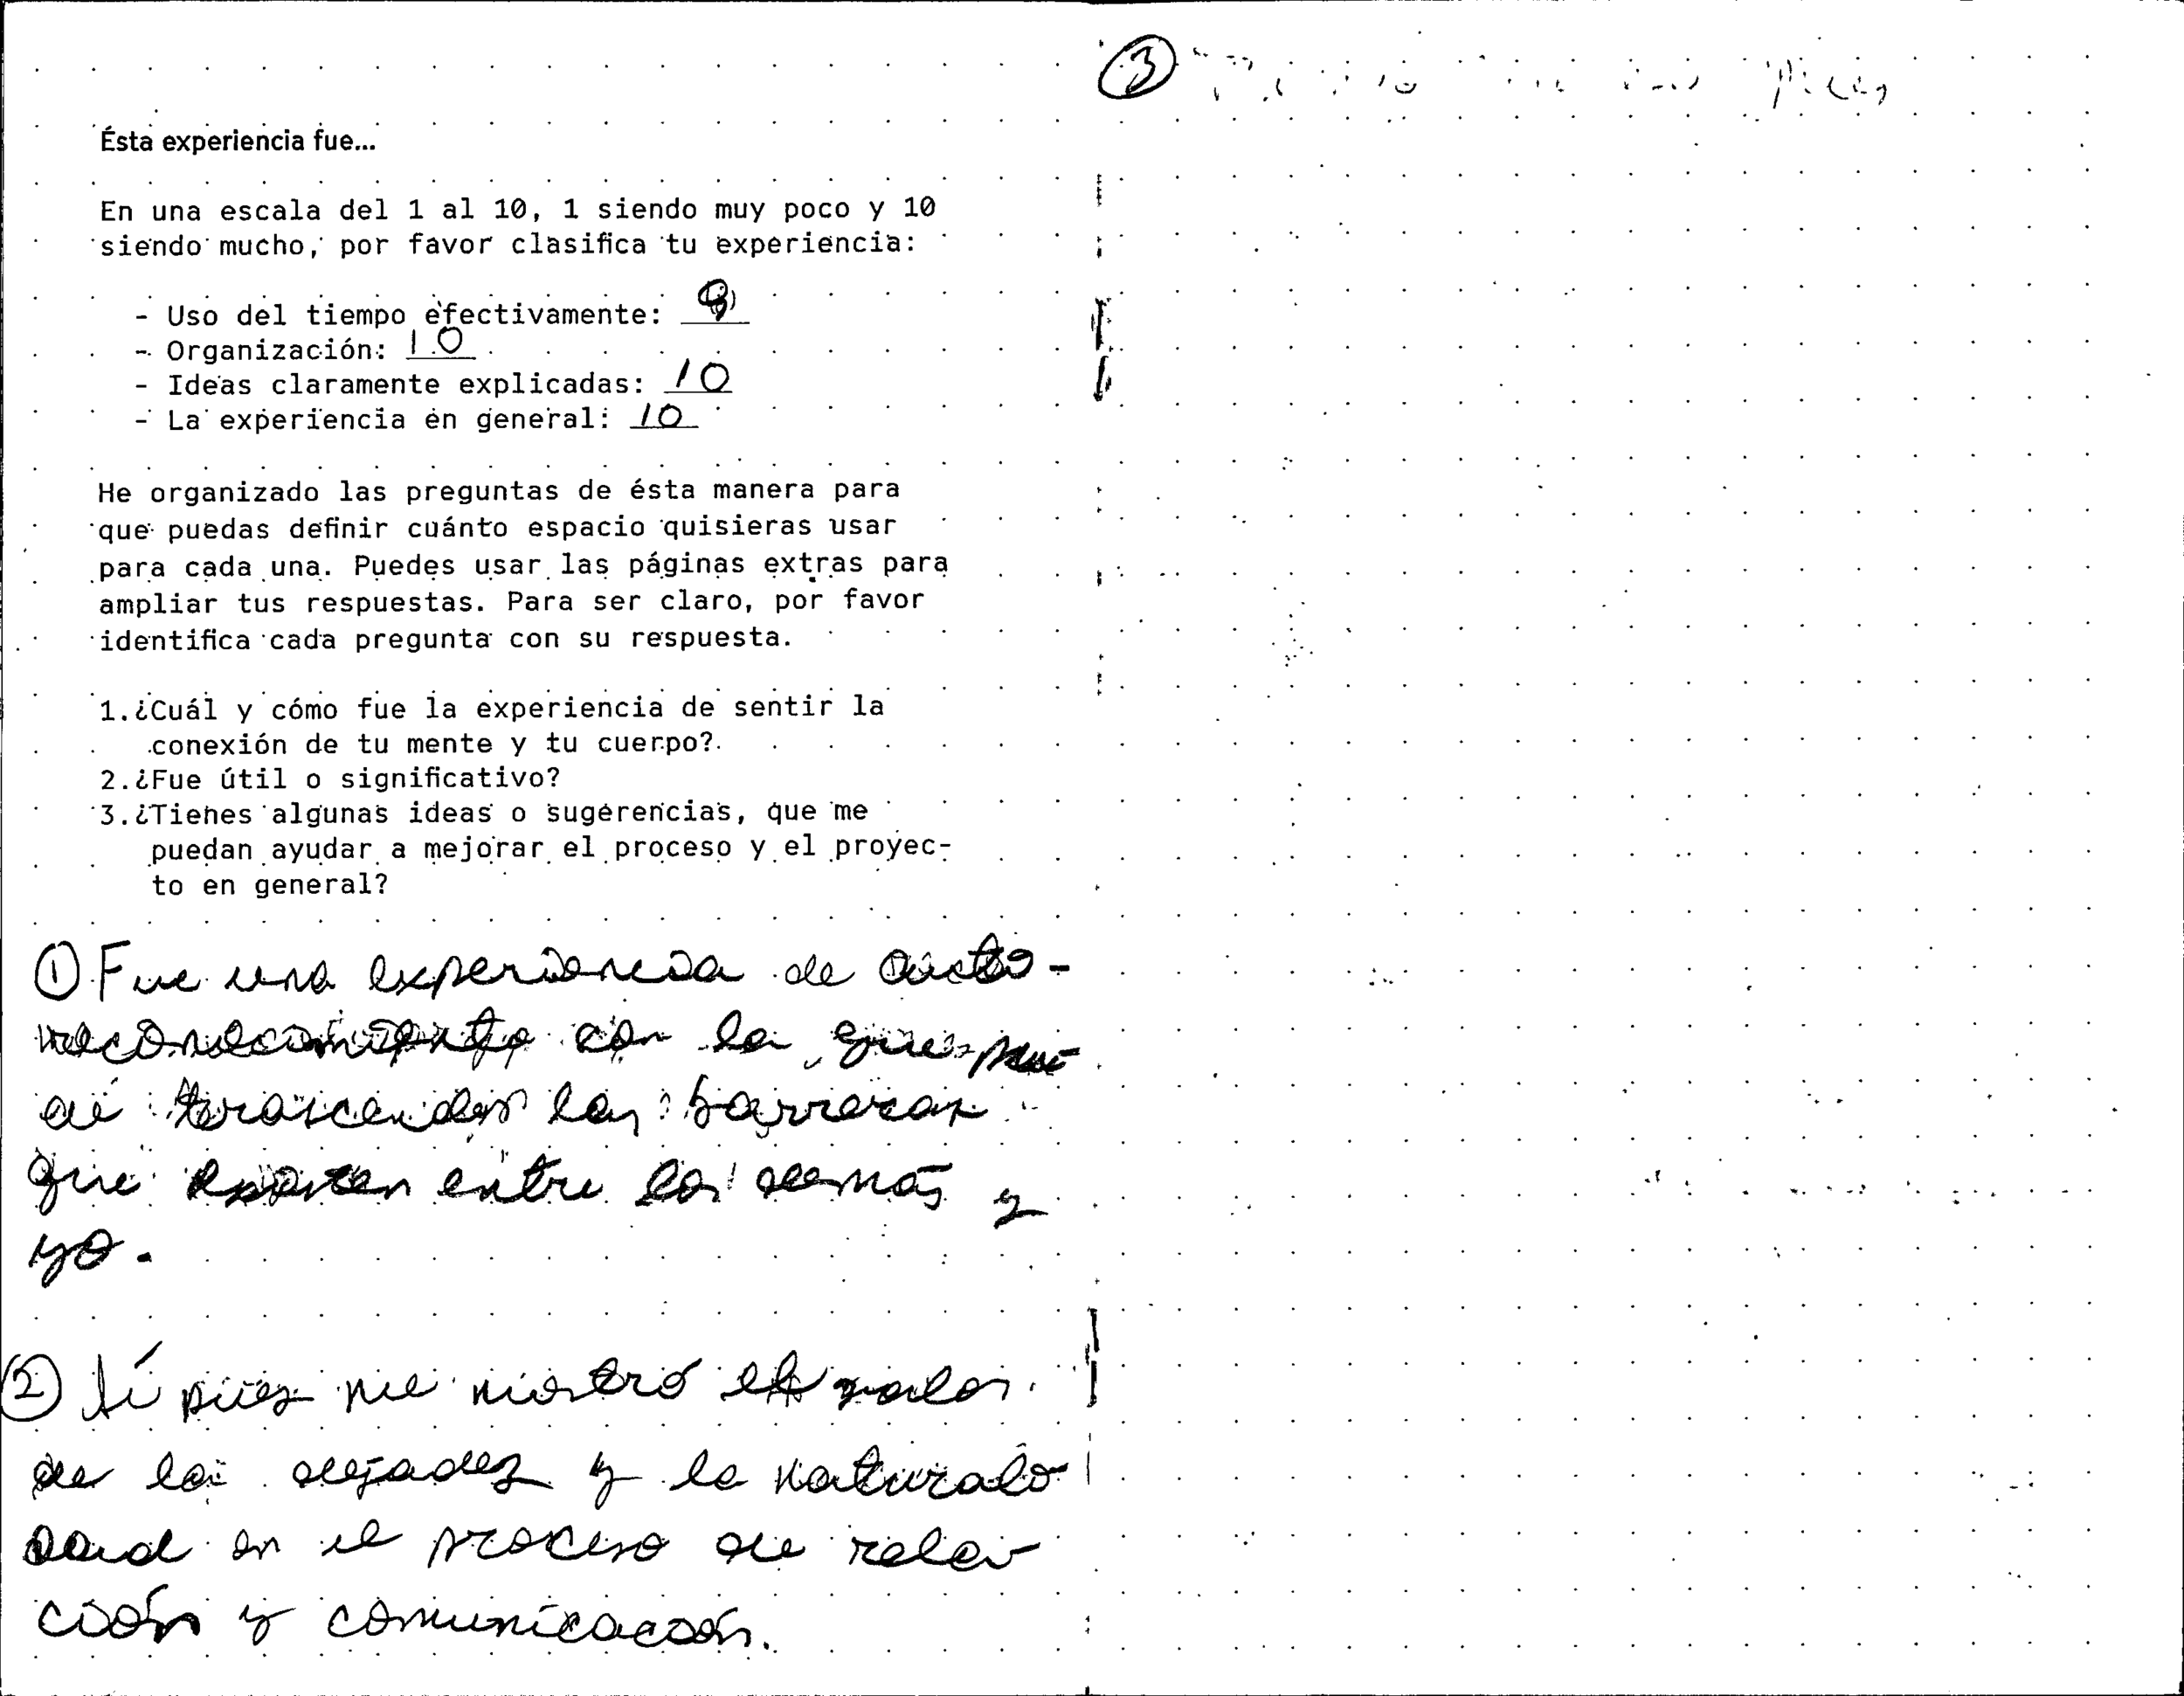 Ésta experiencia fue...
En una escala del 1 al 10, 1 siendo muy poco y 10
siendo mucho, por favor clasifica tu experiencia:
- Uso del tiempo efectivamente: 9
- Organización: 10
- Ideas claramente explicadas: 10
- La experiencia en general: 10
He organizado las preguntas de ésta manera para
que puedas definir cuánto espacio quisieras usar
para cada una. Puedes usar las páginas extras para
ampliar tus respuestas. Para ser claro, por favor
identifica cada pregunta con su respuesta.
1. ¿Cuál y cómo fue la experiencia de sentir la
conexión de tu mente y tu cuerpo?
2. ¿Fue útil o significativo?
3. ¿Tienes algunas ideas o sugerencias, que me
puedan ayudar a mejorar el proceso y el proyec-
to en general?
① Fue una experiencia de auto-
reconocimiento con la que pu-
de trascender las barreras
que existen entre los demás y
yo.
② Sí pues me mostró el valor
de la y la naturali
dad en el proceso de rela-
ción y comunicación.
③